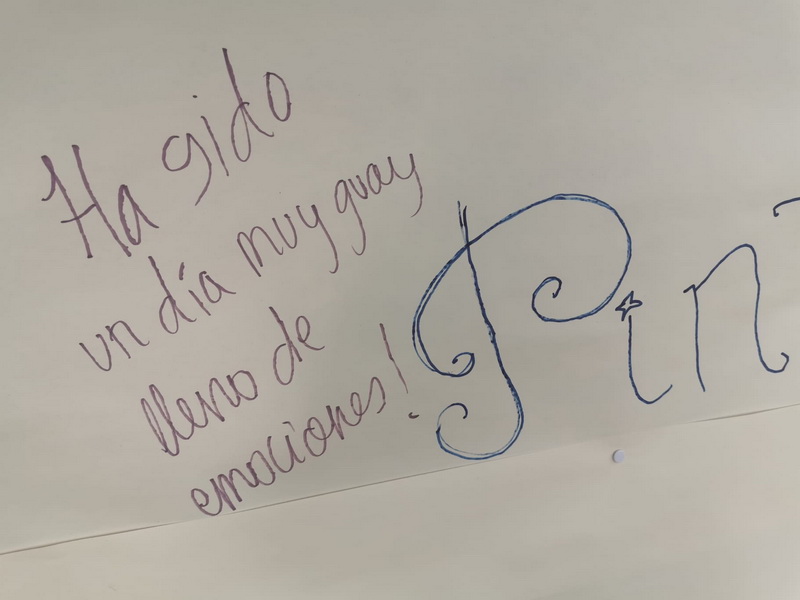 Ha sido
un día muy guay
lleno de
emociones!
Pin